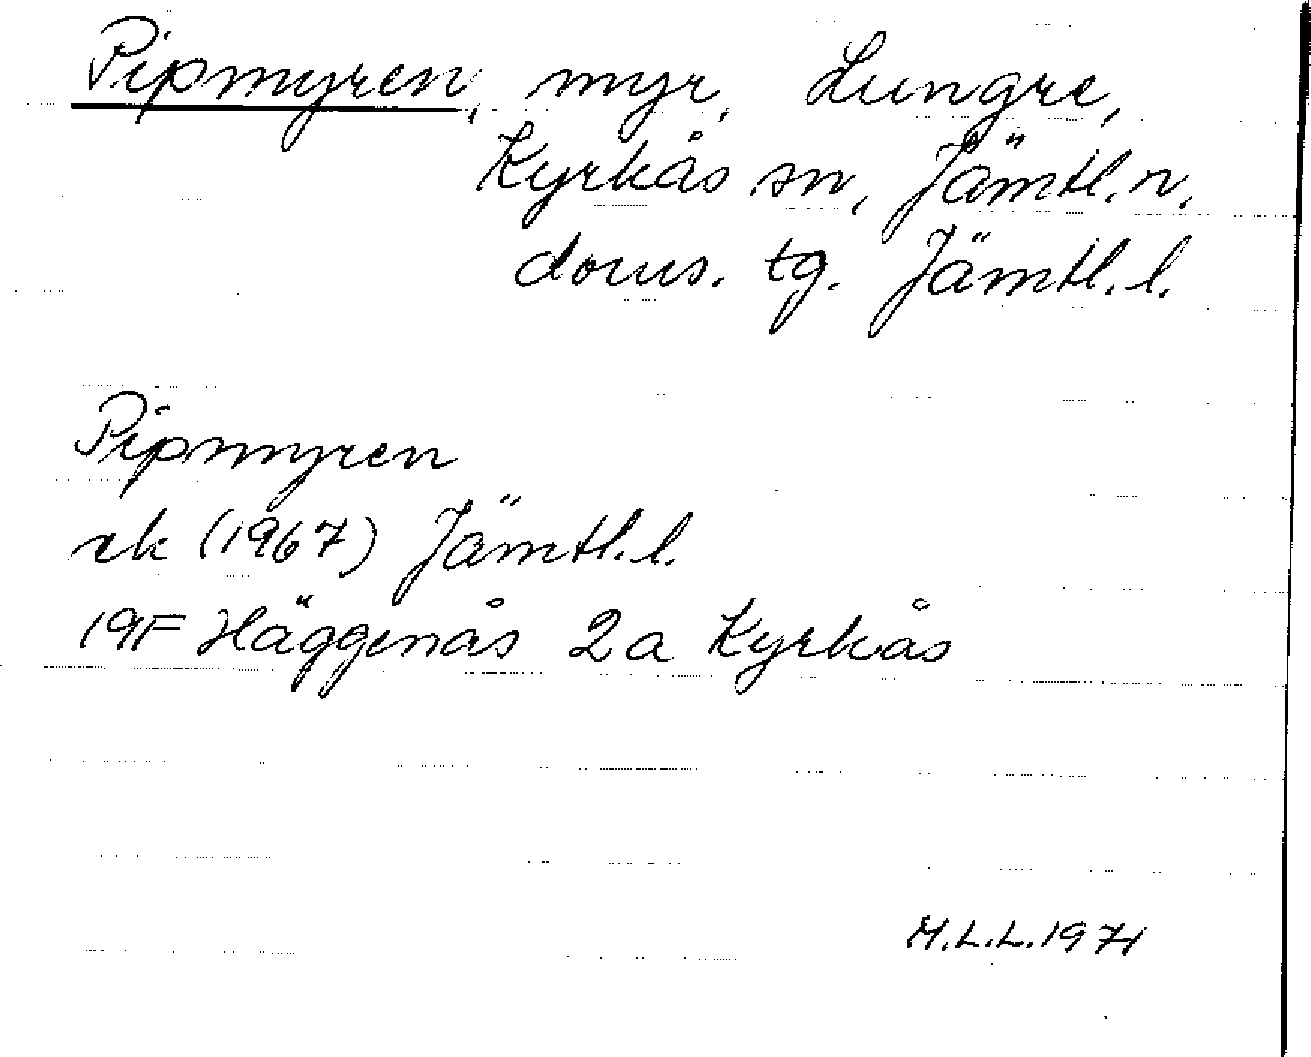 Pipmyren, myr, Lungre,
Kyrkås sn, Jämtl. n.
doms. tg. Jämtl. l.
Pipmyren
rk (1967) Jämtl. l.
19F Häggenås 2a Kyrkås
M.L.L. 1971